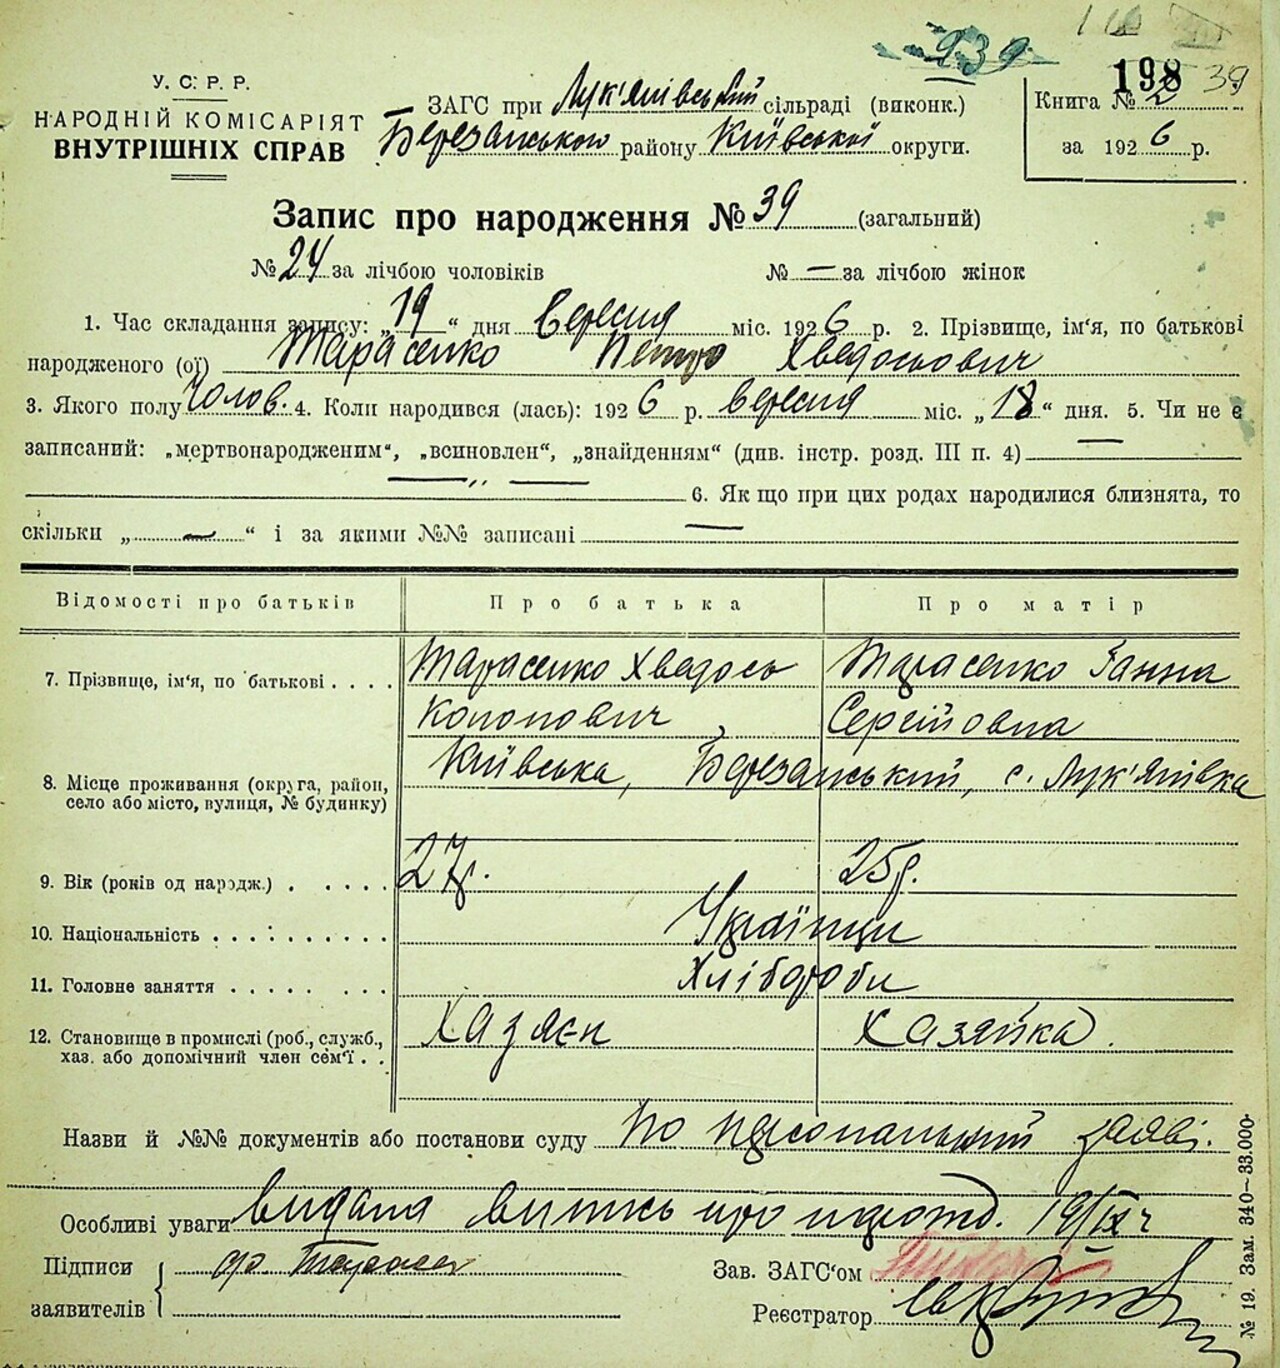 239
198 39
У. С. Р. Р.
НАРОДНІЙ КОМІСАРІЯТ
ВНУТРІШНІХ СПРАВ
ЗАГС при Лук'янівський сільраді (виконк.)
Березанського району Київської округи.
Книга № 2
за 1926 р.
Запис про народження № 39 (загальний)
№ 24 за лічбою чоловіків № — за лічбою жінок
1. Час складання запису: „19“ дня вересня міс. 1926 р. 2. Прізвище, ім'я, по батькові
народженого (ої) Тарасенко Петро Хведосьович
3. Якого полу чолов. 4. Коли народився (лась): 1926 р. вересня міс. „18“ дня. 5. Чи не є
записаний: „мертвонародженим“, „всиновлен“, „знайденням“ (див. інстр. розд. III п. 4) —
— „ — 6. Як що при цих родах народилися близнята, то
скільки „—“ і за якими №№ записані —
Відомості про батьків Про батька Про матір
7. Прізвище, ім'я, по батькові . . . . Тарасенко Хведось Тарасенко Ганна
Кононович Сергійовна
8. Місце проживання (округа, район,
село або місто, вулиця, № будинку) Київська, Березанський, с. Лук'янівка
9. Вік (років од народж.) . . . . . 27р. 25р.
10. Національність . . . . . . . . . . Українци
11. Головне заняття . . . . . . . . Хлібороби
12. Становище в промислі (роб., служб.,
хаз. або допомічний член сем'ї . . Хазяєн Хазяйка.
Назви й №№ документів або постанови суду По персональній заяві.
Особливі уваги видана випись про народ. 19/IX
Підписи
заявителів
Зав. ЗАГС'ом
Реєстратор
№ 19. Зам. 340—33.000.